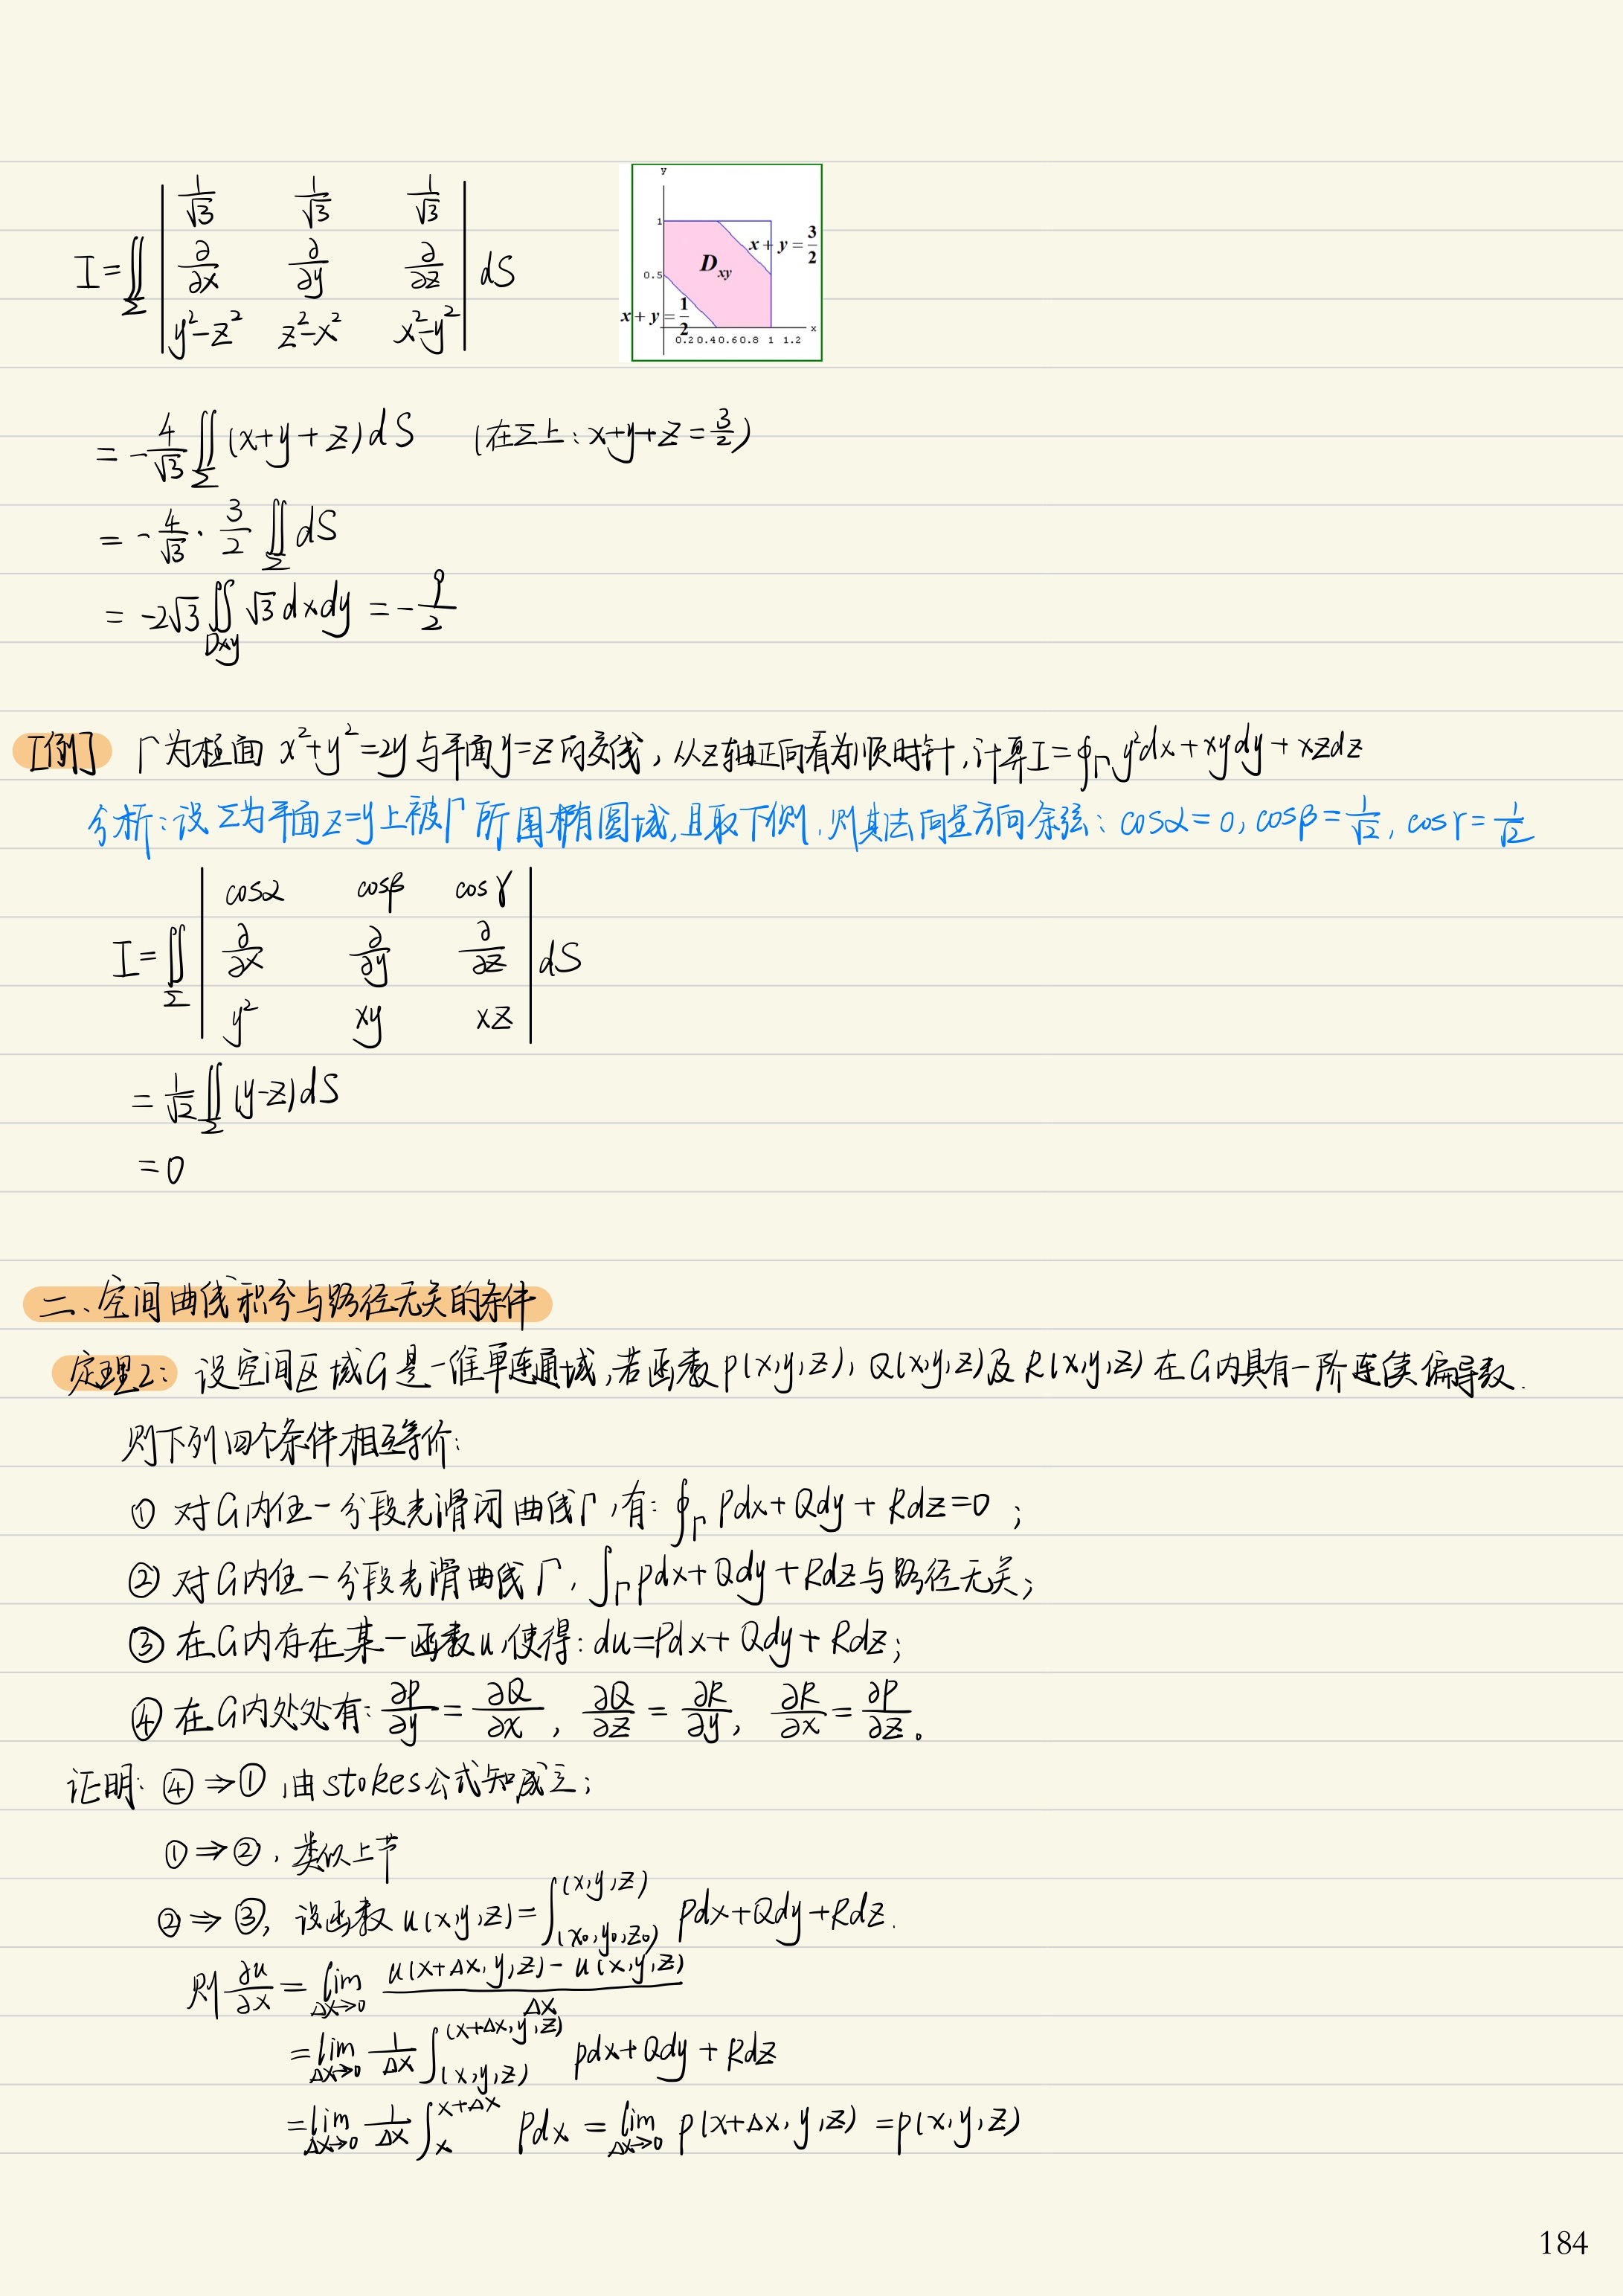 I = ∬_Σ | 1/√3 1/√3 1/√3 ; ∂/∂x ∂/∂y ∂/∂z ; y²-z² z²-x² x²-y² | dS
y
1
x + y = 3/2
D_xy
0.5
x + y = 1/2
x
0.2 0.4 0.6 0.8 1 1.2
= -4/√3 ∬_Σ (x+y+z)dS (在Σ上: x+y+z = 3/2)
= -4/√3 · 3/2 ∬_Σ dS
= -2√3 ∬_Dxy √3 dxdy = -9/2
[例] Γ为柱面 x²+y²=2y 与平面 y=z 的交线, 从z轴正向看为顺时针, 计算 I = ∮_Γ y²dx + xydy + xzdz
分析: 设Σ为平面z=y上被Γ所围椭圆域, 且取下侧, 则其法向量方向余弦: cosα = 0, cosβ = 1/√2, cosγ = 1/√2
I = ∬_Σ | cosα cosβ cosγ ; ∂/∂x ∂/∂y ∂/∂z ; y² xy xz | dS
= 1/√2 ∬_Σ (y-z)dS
= 0
二、空间曲线积分与路径无关的条件
定理2: 设空间区域G是一维单连通域, 若函数P(x,y,z), Q(x,y,z)及R(x,y,z)在G内具有一阶连续偏导数.
则下列四个条件相互等价:
① 对G内任一分段光滑闭曲线Γ, 有: ∮_Γ Pdx + Qdy + Rdz = 0 ;
② 对G内任一分段光滑曲线Γ, ∫_Γ Pdx + Qdy + Rdz与路径无关;
③ 在G内存在某一函数u, 使得: du = Pdx + Qdy + Rdz;
④ 在G内处处有: ∂P/∂y = ∂Q/∂x, ∂Q/∂z = ∂R/∂y, ∂R/∂x = ∂P/∂z。
证明: ④ ⇒ ① 由stokes公式知成立;
① ⇒ ②, 类似上节
② ⇒ ③, 设函数 u(x,y,z) = ∫_(x₀,y₀,z₀)^(x,y,z) Pdx + Qdy + Rdz.
则 ∂u/∂x = lim_Δx→0 (u(x+Δx,y,z) - u(x,y,z))/Δx
= lim_Δx→0 1/Δx ∫_(x,y,z)^(x+Δx,y,z) Pdx + Qdy + Rdz
= lim_Δx→0 1/Δx ∫_x^x+Δx Pdx = lim_Δx→0 P(x+Δx,y,z) = P(x,y,z)
184